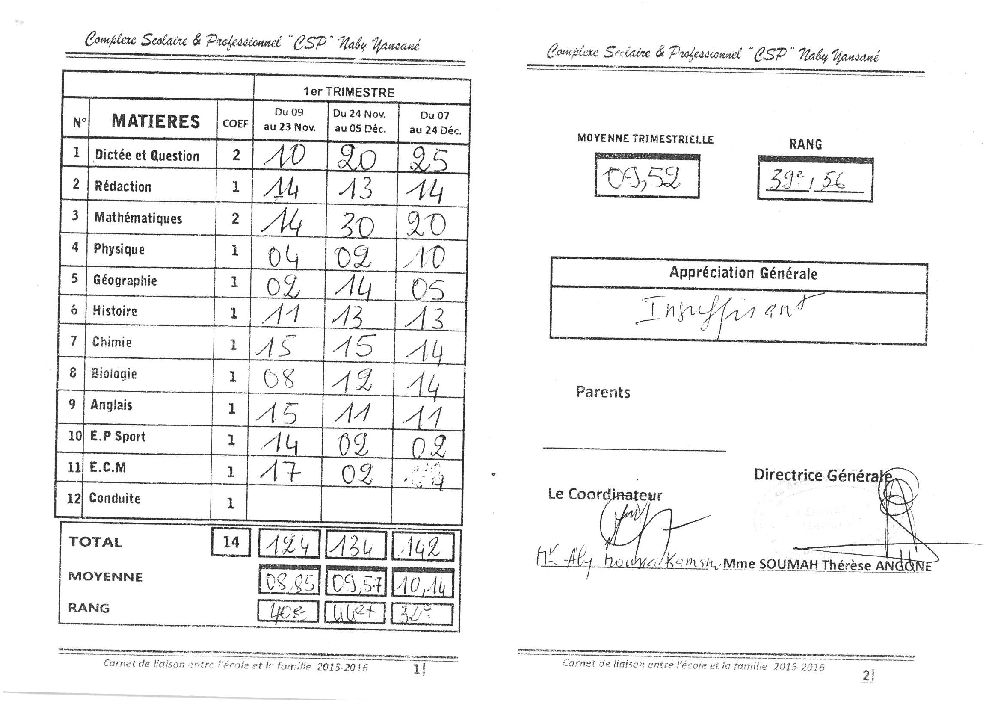 Complexe Scolaire & Professionnel "CSP" Naby Yansané
1er TRIMESTRE
N° MATIERES COEF Du 09 au 23 Nov. Du 24 Nov. au 05 Déc. Du 07 au 24 Déc.
1 Dictée et Question 2 10 20 25
2 Rédaction 1 14 13 14
3 Mathématiques 2 14 30 20
4 Physique 1 04 02 10
5 Géographie 1 02 14 05
6 Histoire 1 11 13 13
7 Chimie 1 15 15 14
8 Biologie 1 08 12 14
9 Anglais 1 15 11 11
10 E.P Sport 1 14 02 02
11 E.C.M 1 17 02
12 Conduite 1
TOTAL 14 124 134 142
MOYENNE 08,85 09,57 10,14
RANG 40e
Carnet de liaison entre l'école et la famille 2015-2016 1
Complexe Scolaire & Professionnel "CSP" Naby Yansané
MOYENNE TRIMESTRIELLE RANG
09,52 39e / 56
Appréciation Générale
Insuffisant
Parents
Directrice Générale
Le Coordinateur
Mr Aly Mme SOUMAH Thérèse ANGONE
Carnet de liaison entre l'école et la famille 2015-2016
2